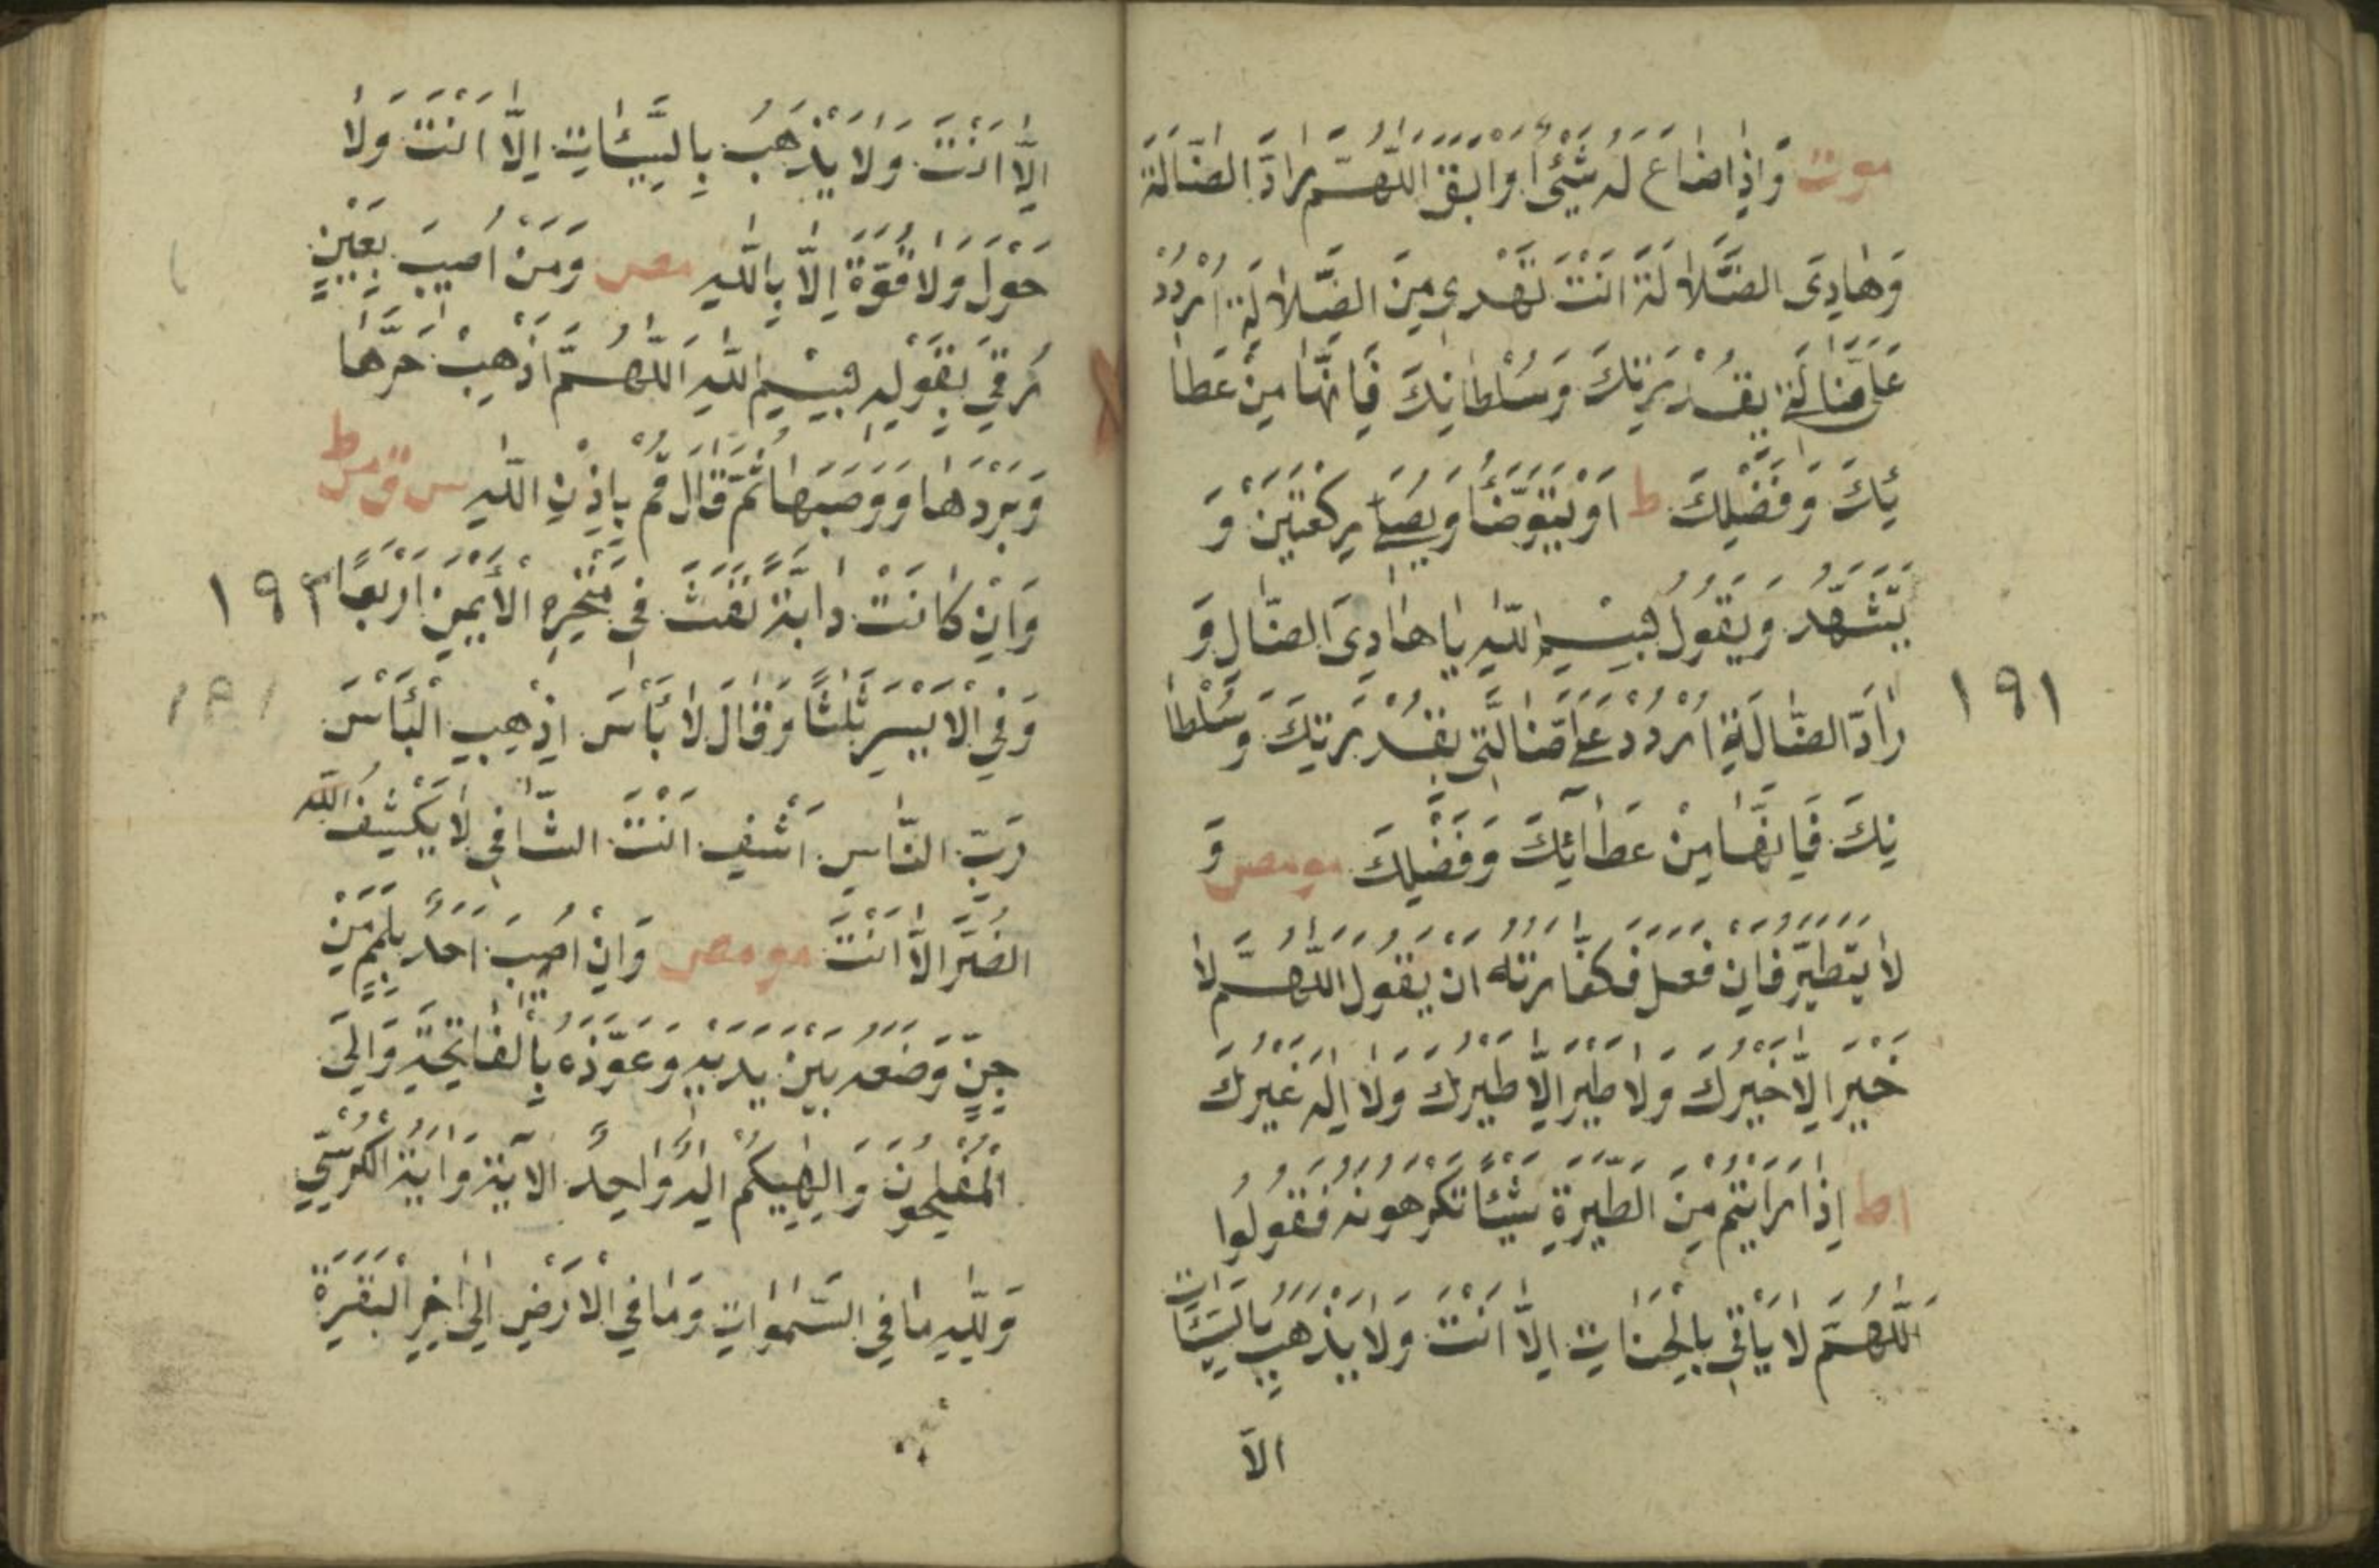 موت وَاِذَا ضَاعَ لَهُ شَيْئٌ اَوْ اَبَقَ اَللّٰهُمَّ رَادَّ الضَّالَّةِ
وَهَادِىَ الضَّلَالَةِ اَنْتَ تَهْدِى مِنَ الضَّلَالَةِ اُرْدُدْ
عَلَىَّ ضَالَّتِى بِقُدْرَتِكَ وَسُلْطَانِكَ فَاِنَّهَا مِنْ عَطَا
ئِكَ وَفَضْلِكَ ط اَوْ يَتَوَضَّأُ وَيُصَلِّى رَكْعَتَيْنِ وَ
يَتَشَهَّدُ وَيَقُولُ بِسْمِ اللّٰهِ يَا هَادِىَ الضَّالِ وَ
١٩١
رَادَّ الضَّالَّةِ اُرْدُدْ عَلَىَّ ضَالَّتِى بِقُدْرَتِكَ وَسُلْطَا
نِكَ فَاِنَّهَا مِنْ عَطَآئِكَ وَفَضْلِكَ مومص وَ
لَا يَتَطَيَّرُ فَاِنْ فَعَلَ فَكَفَّارَتُهُ اَنْ يَقُولَ اَللّٰهُمَّ لَا
خَيْرَ اِلَّا خَيْرُكَ وَلَا طَيْرَ اِلَّا طَيْرُكَ وَلَا اِلٰهَ غَيْرُكَ
اط اِذَا رَاَيْتُمْ مِنَ الطِّيَرَةِ شَيْئًا تَكْرَهُونَهُ فَقُولُوا
اَللّٰهُمَّ لَا يَأْتِى بِالْحَسَنَاتِ اِلَّا اَنْتَ وَلَا يَذْهَبُ بِالسَّيِّئَاتِ
الّا
اِلَّا اَنْتَ وَلَا يَذْهَبُ بِالسَّيِّئَاتِ اِلَّا اَنْتَ وَلَا
حَوْلَ وَلَا قُوَّةَ اِلَّا بِاللّٰهِ مص وَمَنْ اُصِيبَ بِعَيْنٍ
رُقِىَ بِقَوْلِهِ بِسْمِ اللّٰهِ اَللّٰهُمَّ اَذْهِبْ حَرَّهَا
وَبَرْدَهَا وَوَصَبَهَا ثُمَّ قَالَ قُمْ بِاِذْنِ اللّٰهِ س ق مس ط
وَاِنْ كَانَتْ دَابَّةً نَفَثَ فِى مَنْخِرِهِ الْأَيْمَنِ اَرْبَعًا
١٩٢
وَفِى الْاَيْسَرِ ثَلٰثًا وَقَالَ لَا بَأْسَ اِذْهِبِ الْبَأْسَ
١٩١
رَبَّ النَّاسِ اَشْفِ اَنْتَ الشَّافِى لَا يَكْشِفُ اللّٰه
الضُّرَّ اِلَّا اَنْتَ مومص وَاِنْ اُصِيبَ اَحَدٌ بِلَمَمٍ مِنْ
جِنٍّ وَضَعَهُ بَيْنَ يَدَيْهِ وَعَوَّذَهُ بِالْفَاتِحَةِ وَالٓى
الْمُفْلِحُونَ وَاِلٰهُكُمْ اِلٰهٌ وَاحِدٌ الآيَةَ وَاٰيَةَ الْكُرْسِىِّ
وَلِلّٰهِ مَا فِى السَّمٰوَاتِ وَمَا فِى الْاَرْضِ اِلٰى اٰخِرِ الْبَقَرَةِ